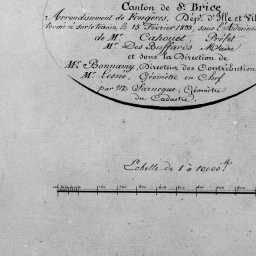 Canton de St. Brice
Arrondissement de Fougères, Dépt. d'Ille et Vil
terminé sur le terrain le 15 Février 1833, sous l'Administra
de Mr. Cahouet, Préfet
Mr. Des Buffards Maire
et sous la Direction de
Mr. Bonnamy, Directeur des Contributions
Mr. Lesné, Géomètre en Chef
par Mr. Géomètre
du Cadastre.
Echelle de 1 à 10000